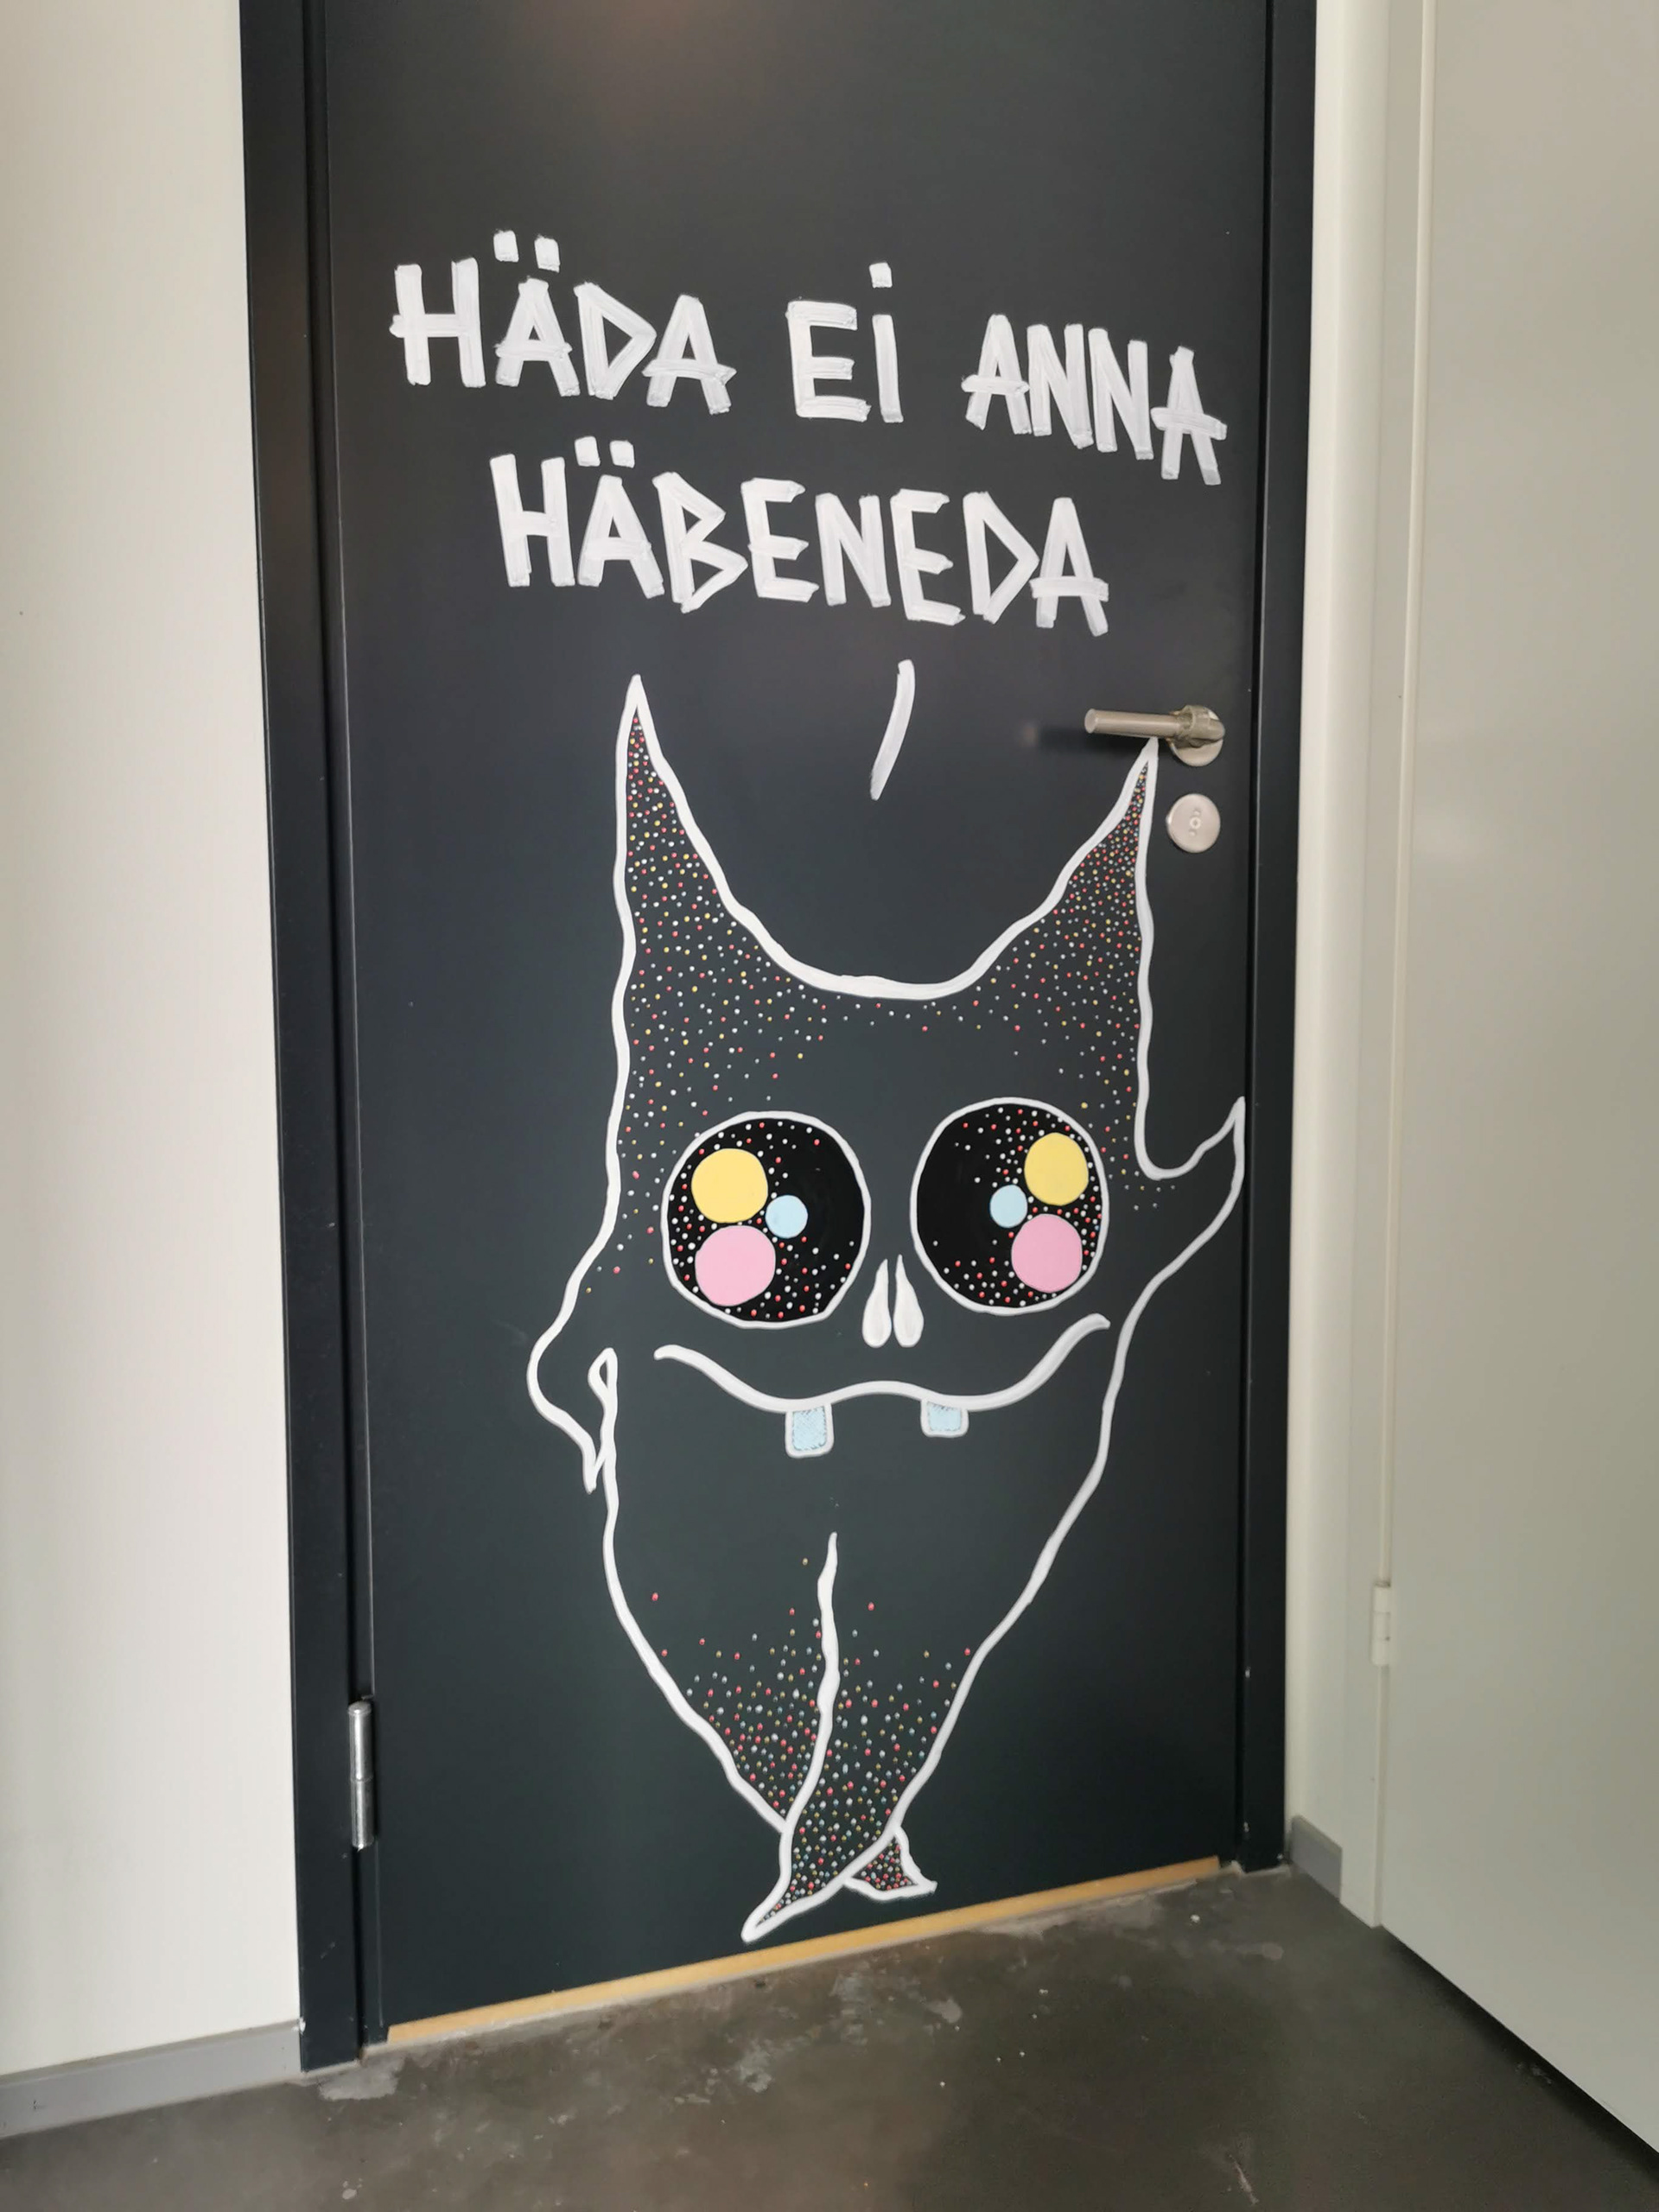 HÄDA Ei ANNA
HÄBENEDA